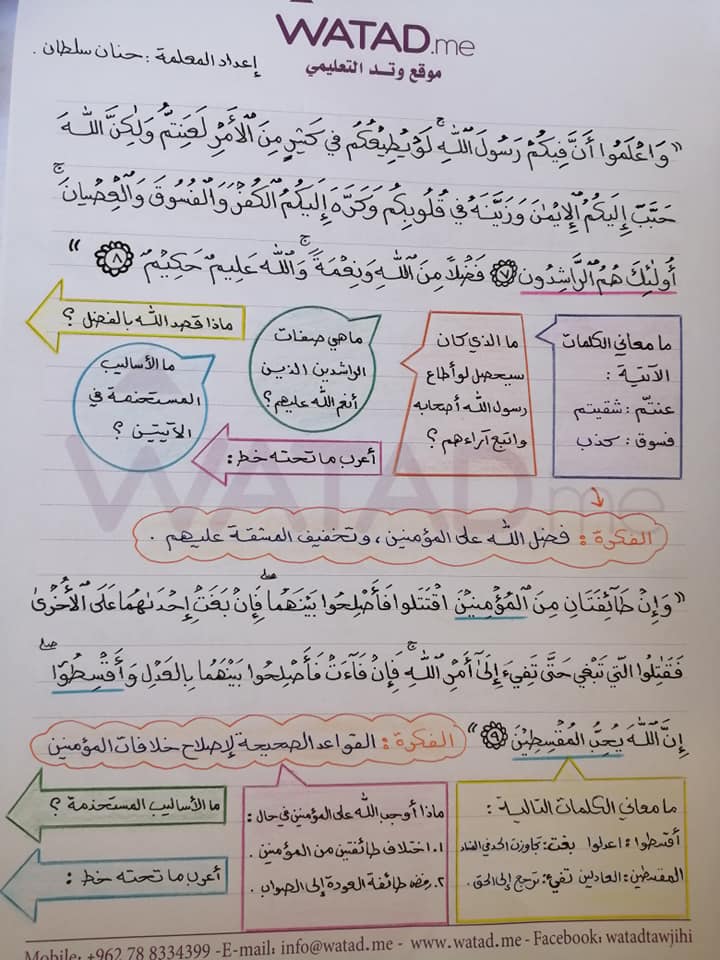 WATAD.me
موقع وتد التعليمي
إعداد المعلمة : حنان سلطان .
« وَاعْلَمُوا أَنَّ فِيكُمْ رَسُولَ اللَّهِ ۚ لَوْ يُطِيعُكُمْ فِي كَثِيرٍ مِنَ الْأَمْرِ لَعَنِتُّمْ وَلَٰكِنَّ اللَّهَ
حَبَّبَ إِلَيْكُمُ الْإِيمَٰنَ وَزَيَّنَهُ فِي قُلُوبِكُمْ وَكَرَّهَ إِلَيْكُمُ الْكُفْرَ وَالْفُسُوقَ وَالْعِصْيَانَ ۚ
أُولَٰئِكَ هُمُ الرَّاشِدُونَ ٧ فَضْلًا مِنَ اللَّهِ وَنِعْمَةً ۚ وَاللَّهُ عَلِيمٌ حَكِيمٌ ٨ »
ما معاني الكلمات
الآتية :
عنتم : شقيتم
فسوق : كذب
ما الذي كان
سيحصل لو أطاع
رسول الله أصحابه
واتبع آراءهم ؟
ما هي صفات
الراشدين الذين
أنعم الله عليهم ؟
ماذا قصد الله بالفضل ؟
ما الأساليب
المستخدمة في
الآيتين ؟
أعرب ما تحته خط :
الفكرة : فضل الله على المؤمنين ، وتخفيف المشقة عليهم .
« وَإِنْ طَائِفَتَانِ مِنَ الْمُؤْمِنِينَ اقْتَتَلُوا فَأَصْلِحُوا بَيْنَهُمَا ۖ فَإِنْ بَغَتْ إِحْدَىٰهُمَا عَلَى الْأُخْرَىٰ
فَقَٰتِلُوا الَّتِي تَبْغِي حَتَّىٰ تَفِيءَ إِلَىٰ أَمْرِ اللَّهِ ۚ فَإِنْ فَاءَتْ فَأَصْلِحُوا بَيْنَهُمَا بِالْعَدْلِ وَأَقْسِطُوا ۖ
إِنَّ اللَّهَ يُحِبُّ الْمُقْسِطِينَ ٩ »
الفكرة : القواعد الصحيحة لإصلاح خلافات المؤمنين
ما معاني الكلمات التالية :
أقسطوا : اعدلوا بغت : تجاوزت الحد في الفساد
المقسطين : العادلين تفيء : ترجع إلى الحق .
ماذا أوجب الله على المؤمنين في حال :
١. اختلاف طائفتين من المؤمنين .
٢. رفض طائفة العودة إلى الصواب .
ما الأساليب المستخدمة ؟
أعرب ما تحته خط :
Mobile: +962 78 8334399 -E-mail: info@watad.me - www.watad.me - Facebook: watadtawjihi
WATAD.me